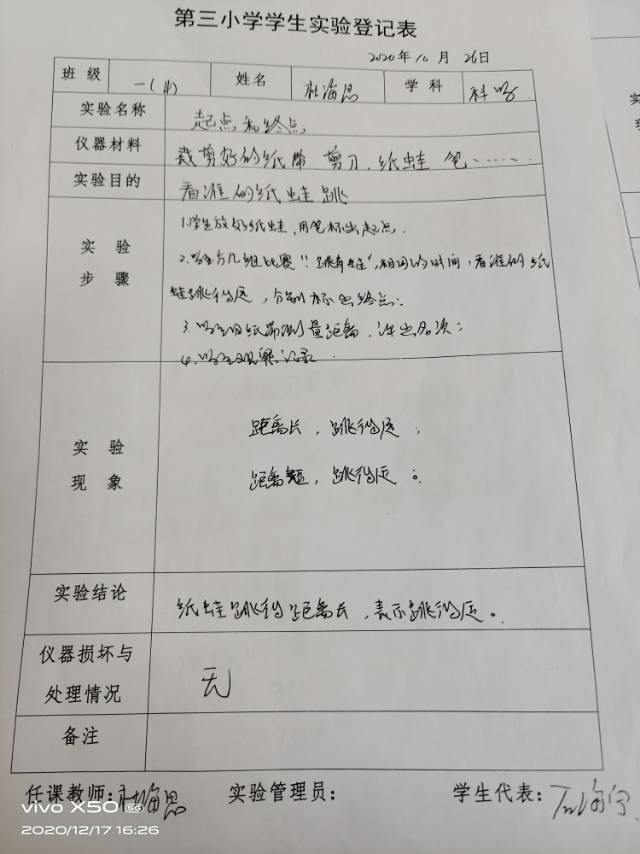 第三小学学生实验登记表
2020年10月26日
班级 一(4) 姓名 杜海思 学科 科学
实验名称 起点和终点
仪器材料 裁剪好的纸带 剪刀 纸蛙 笔……
实验目的 看谁的纸蛙跳
实验步骤
1.学生放好纸蛙,用笔标出起点.
2.学生分几组比赛"跳青蛙",相同的时间,看谁的纸
蛙跳得远,分别标出终点;
3.学生用纸带测量距离,评出名次;
4.学生观察记录.
实验现象
距离长,跳得远;
距离短,跳得近。
实验结论 纸蛙跳得距离长,表示跳得远。
仪器损坏与处理情况 无
备注
任课教师:杜海思 实验管理员: 学生代表:
vivo X50 5G
2020/12/17 16:26